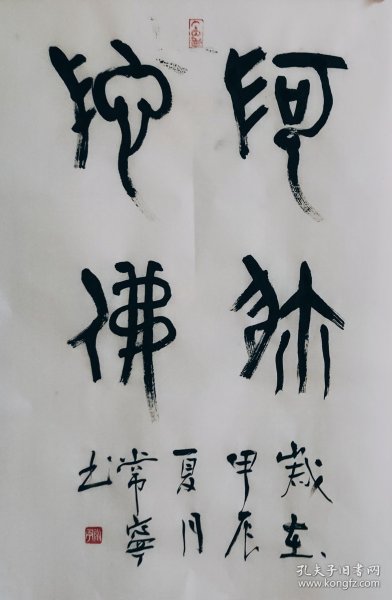 阿弥
陀佛
岁在
甲辰
夏月
常宁
书
孔夫子旧书网
www.kongfz.com